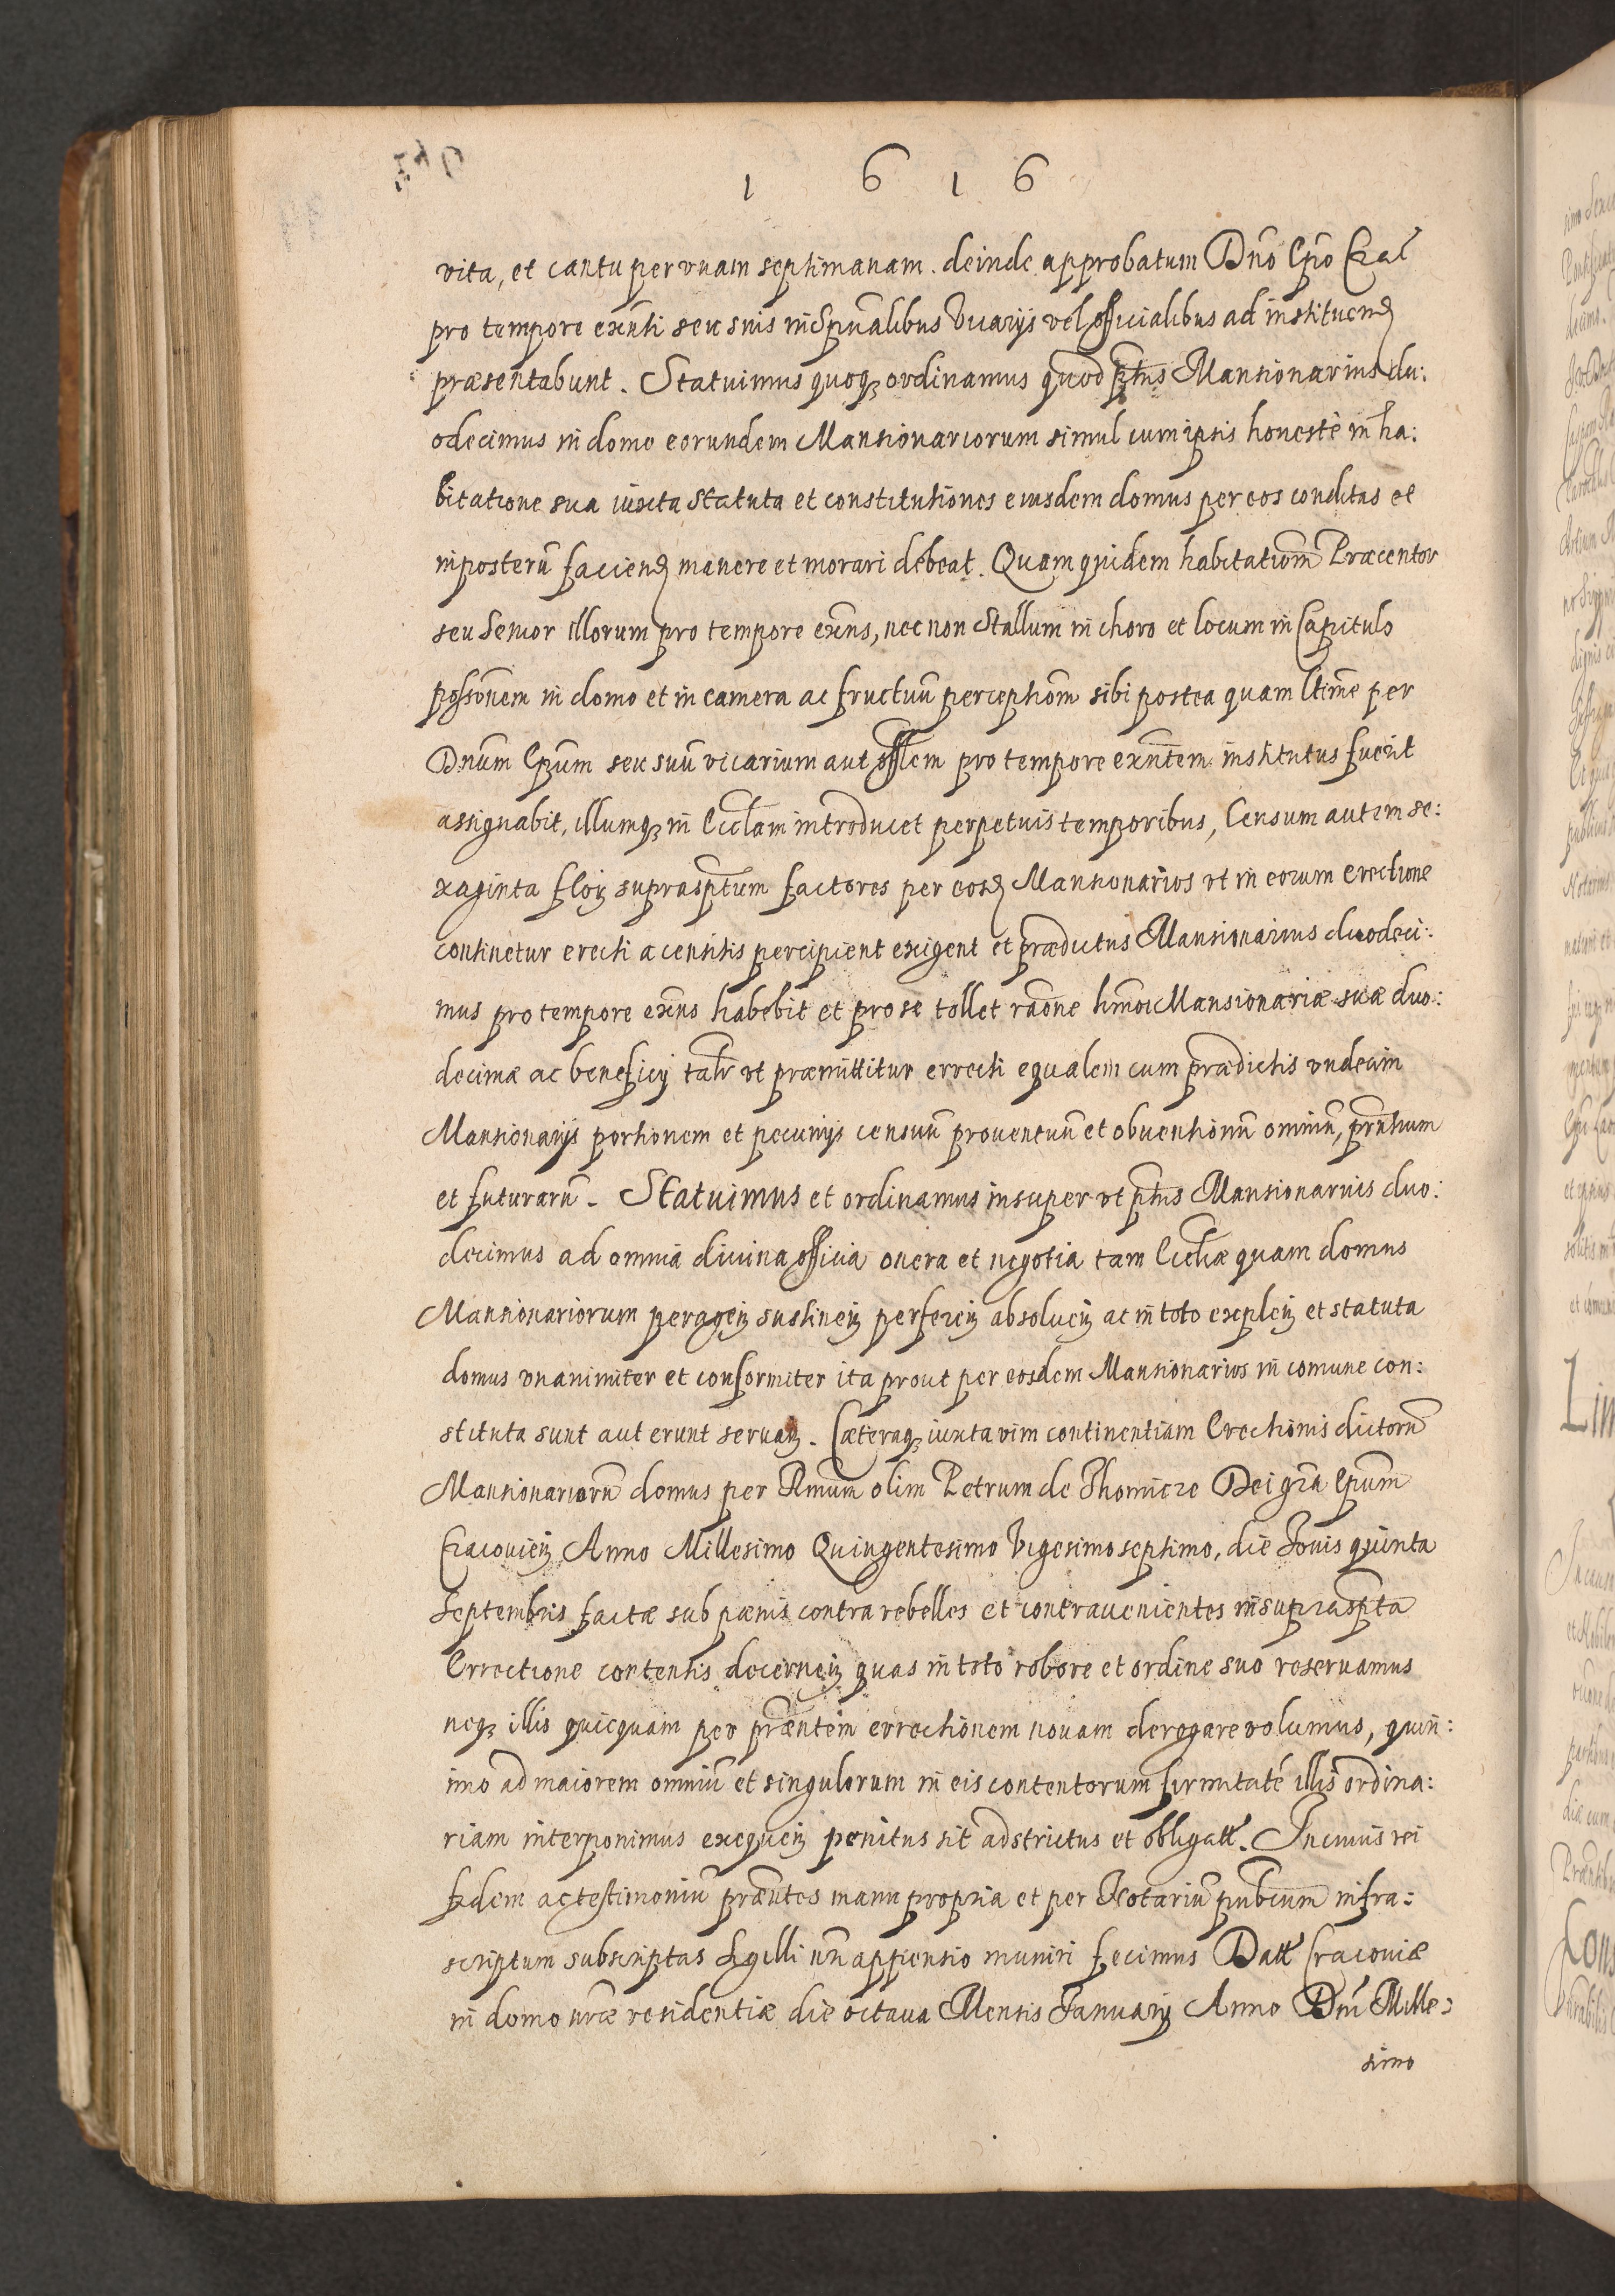 1 6 1 6
vita, et cantu per vnam septimanam. deinde approbatum Dno Epo Crac
pro tempore exnti seu suis in Spualibus Vicarijs vel officialibus ad instituend
praesentabunt. Statuimus quoq ordinamus quod ptus Mansionarius du:
odecimus in domo eorundem Mansionariorum simul cum ipsis honestè in ha:
bitatione sua iuxta statuta et constitutiones eiusdem domus per eos conditas et
inposterū faciend manere et morari debeat. Quam quidem habitationm Praecentor
seu Senior illorum pro tempore exns, nec non Stallum in choro et locum in Capitulo
possonem in domo et in camera ac fructuū perceptiom sibi postea quam ltime per
Dnum Epum seu suū vicarium aut offlem pro tempore exntem institutus fuerit
assignabit, illumq in Eccłam introducet perpetuis temporibus, Censum autem se:
xaginta flor suprasptum factores per eosd Mansionarios vt in eorum erectione
continetur erecti a censitis percipient exigent et praedictus Mansionarius duodeci:
mus pro tempore exns habebit et pro se tollet raone hmoi Mansionariæ suæ duo:
decimæ ac beneficij talr vt præmittitur errecti equalem cum prædictis vndecim
Mansionarijs portionem et pecunijs censuū prouentuū et obuentionū omniū, prntium
et futurarū. Statuimus et ordinamus insuper vt ptus Mansionarius duo:
decimus ad omnia diuina officia onera et negotia tam Ecclæ quam domus
Mansionariorum peragen sustinen perferen absoluen ac in toto explen et statuta
domus vnanimiter et conformiter ita prout per eosdem Mansionarios in comune con:
stituta sunt aut erunt seruan. Cæteraq iuxta vim continentiam Erectionis dictorū
Mansionariorū domus per Rmum olim Petrum de Thomicze Dei gra Epum
Cracouien Anno Millesimo Quingentesimo Vigesimo septimo, die Jouis quinta
Septembris factæ sub pœnis contra rebelles et contrauenientes in supraspta
Errectione contentis decernen quas in toto robore et ordine suo reseruamus
neq illis quicquam per præntem errectionem nouam derogare volumus, quin:
imo ad maiorem omniū et singulorum in eis contentorum firmitatē illis ordina:
riam interponimus exequen penitus sit adstrictus et obligatt. In cuius rei
fidem ac testimoniū præntes manu propria et per Notariū pubcum infra:
scriptum subscriptas Sigilli nri appensio muniri fecimus Datt Cracouiæ
in domo nræ residentiæ die octaua Mensis Januarij Anno Dni Mille:
simo